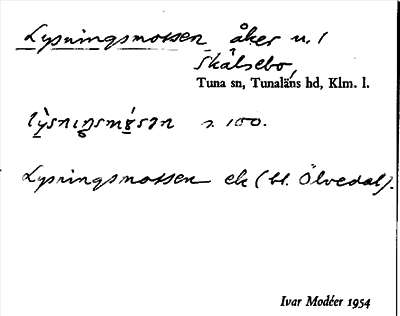 Lysningsmossen åker u. /
Skälsebo,
Tuna sn, Tunaläns hd, Klm. l.
s. 100.
Lysningsmossen ek (bl. Ölvedal).
Ivar Modéer 1954